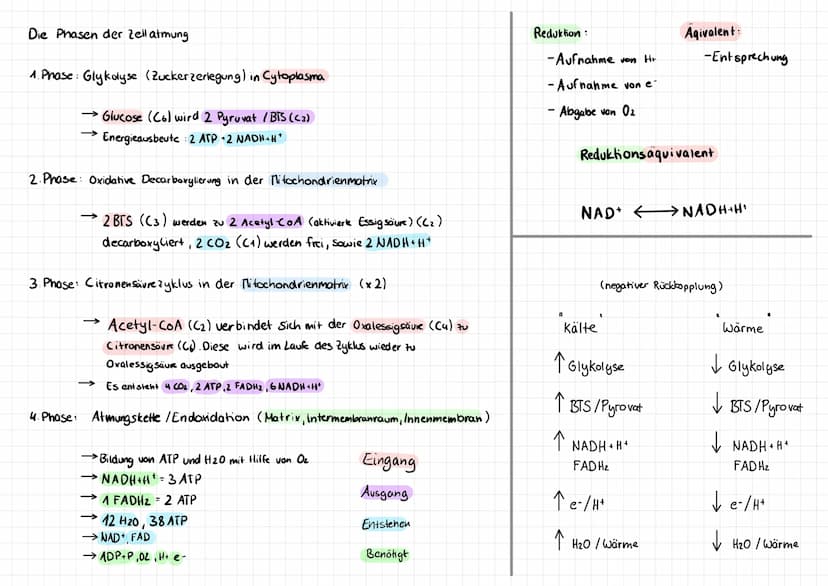 Die Phasen der Zellatmung
1. Phase: Glykolyse (Zuckerzerlegung) in Cytoplasma
→ Glucose (C6) wird 2 Pyruvat / BTS (C3)
→ Energieausbeute: 2 ATP + 2 NADH+H⁺
2. Phase: Oxidative Decarboxylierung in der Mitochondrienmatrix
→ 2 BTS (C3) werden zu 2 Acetyl-CoA (aktivierte Essigsäure) (C2)
decarboxyliert, 2 CO2 (C1) werden frei, sowie 2 NADH+H⁺
3. Phase: Citronensäurezyklus in der Mitochondrienmatrix (x2)
→ Acetyl-CoA (C2) verbindet sich mit der Oxalessigsäure (C4) zu
Citronensäure (C6). Diese wird im Laufe des Zyklus wieder zu
Oxalessigsäure ausgebaut
→ Es entsteht 4 CO2, 2 ATP, 2 FADH2, 6 NADH+H⁺
4. Phase: Atmungskette / Endoxidation (Matrix, Intermembranraum, Innenmembran)
→ Bildung von ATP und H2O mit Hilfe von O2
→ NADH+H⁺ = 3 ATP
→ 1 FADH2 = 2 ATP
→ 12 H2O, 38 ATP
→ NAD⁺, FAD
→ ADP+P, O2, H+ e-
Eingang
Ausgang
Entstehen
Benötigt
Reduktion:
- Aufnahme von H+
- Aufnahme von e⁻
- Abgabe von O2
Äqivalent:
- Entsprechung
Reduktionsäquivalent
NAD⁺ ⟷ NADH+H⁺
(negativer Rückkopplung)
"Kälte"
↑ Glykolyse
↑ BTS/Pyrovat
↑ NADH+H⁺
FADH2
↑ e-/H+
↑ H2O / Wärme
"Wärme"
↓ Glykolyse
↓ BTS/Pyrovat
↓ NADH+H⁺
FADH2
↓ e-/H+
↓ H2O / Wärme